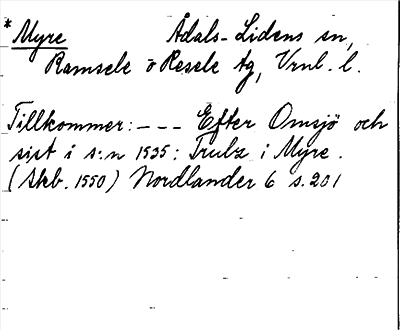 * Myre Ådals-Lidens sn,
Ramsele o Resele tg, Vrnl. l.
Tillkommer: - - - Efter Omsjö och
sist i s:n 1535: Trulz i Myre.
(Skb. 1550) Nordlander 6 s. 201